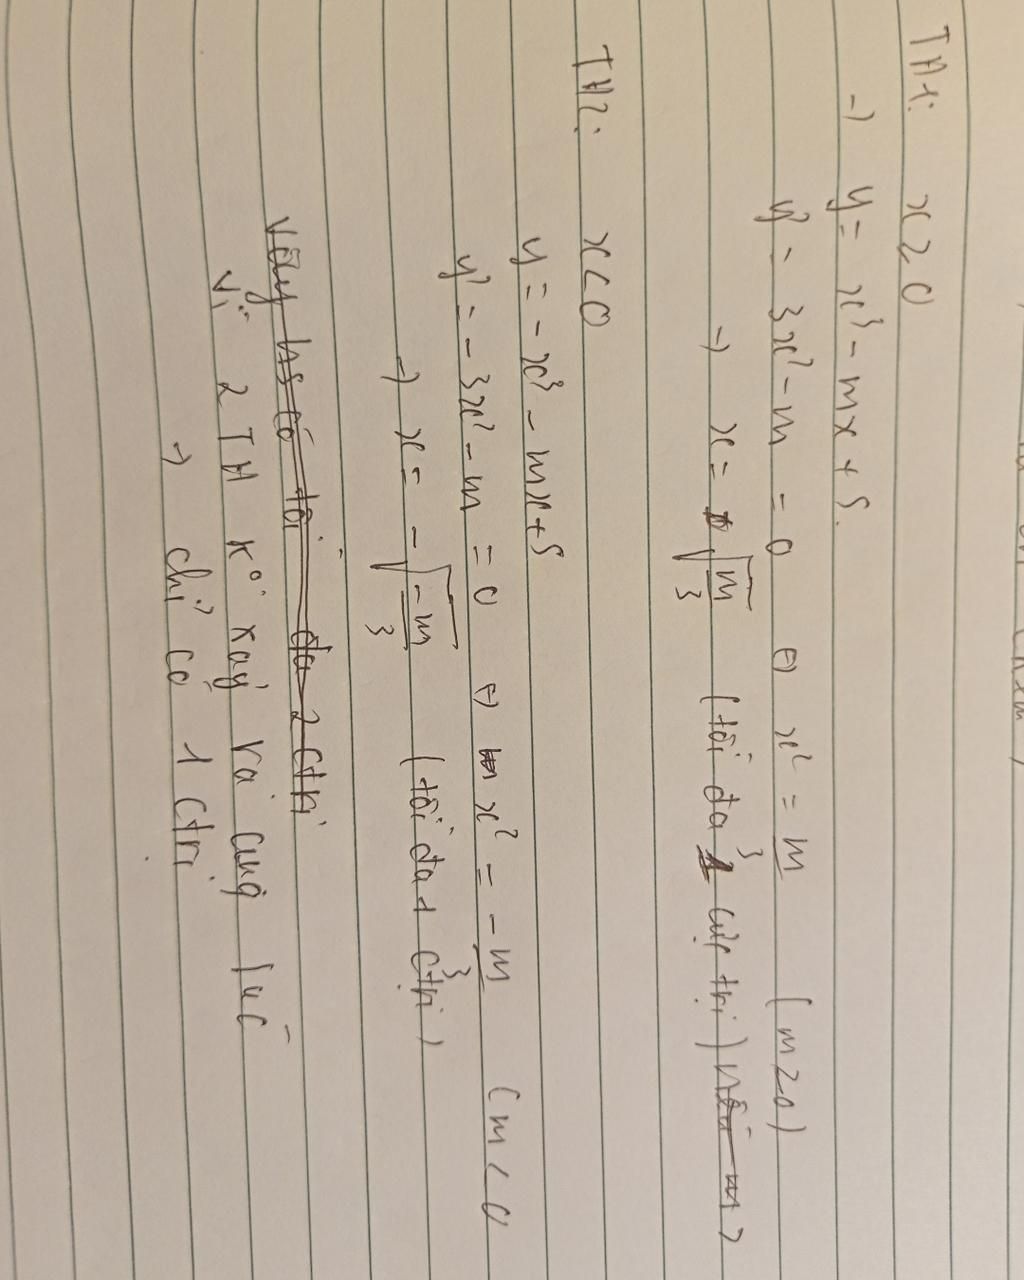 TH1: x ≥ 0
→ y = x³ - mx + 5.
y' = 3x² - m = 0 ⇔ x² = m/3 (m ≥ 0)
→ x = √(m/3) (tối đa 1 cực trị) nếu m >
TH2: x < 0
y = - x³ - mx + 5
y' = - 3x² - m = 0 ⇔ x² = -m/3 (m < 0
→ x = - √(-m/3) (tối đa 1 ctrị)
Vậy hs có tối đa 2 ctrị
Vì 2 TH k° xảy ra cùng lúc
→ chỉ có 1 ctrị